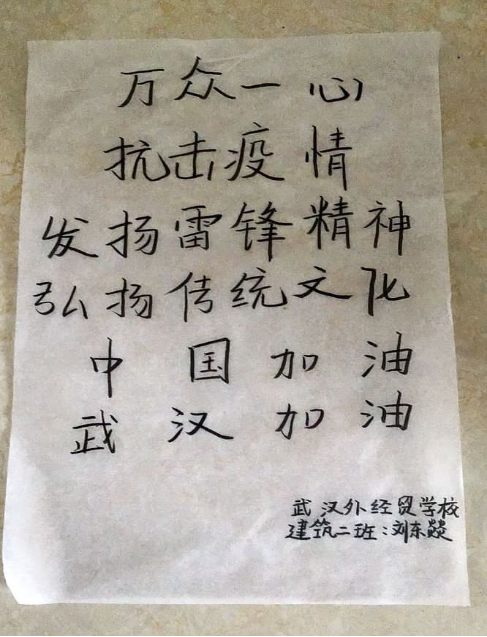 万众一心
抗击疫情
发扬雷锋精神
弘扬传统文化
中国加油
武汉加油
武汉外经贸学校
建筑二班:刘东燚